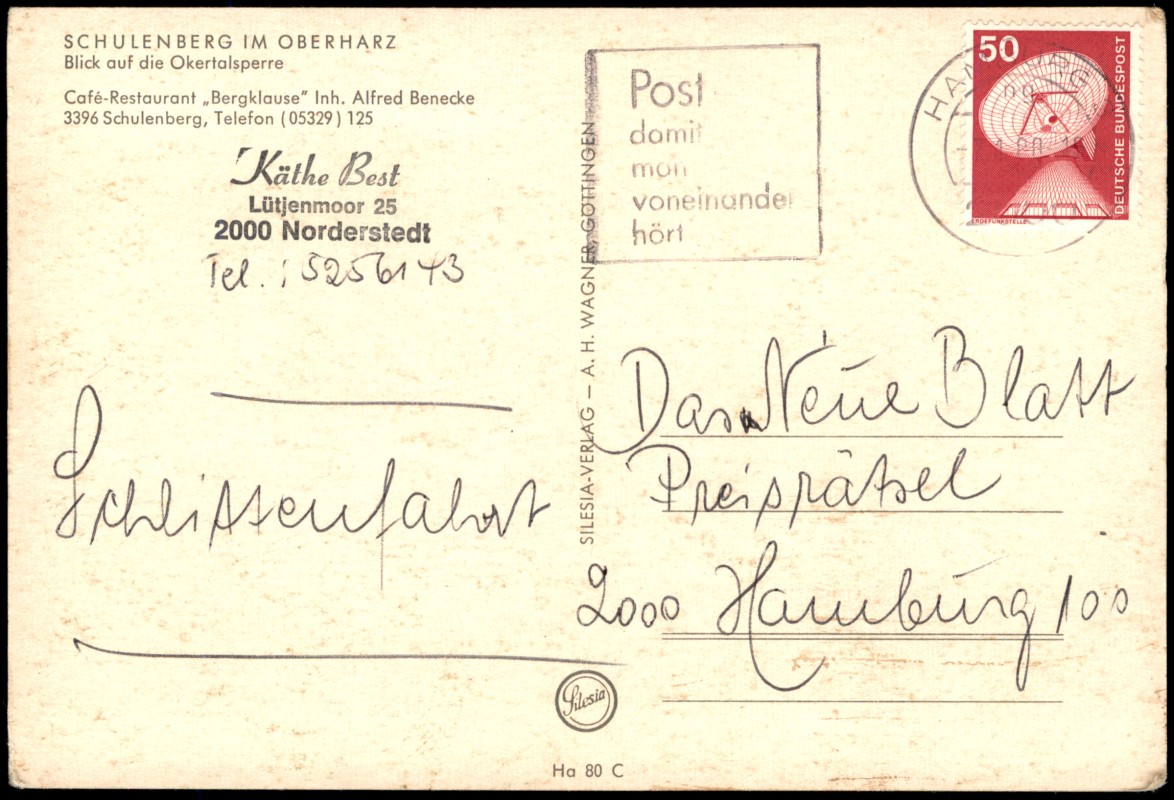 SCHULENBERG IM OBERHARZ
Blick auf die Okertalsperre
Café-Restaurant „Bergklause" Inh. Alfred Benecke
3396 Schulenberg, Telefon (05329) 125
Käthe Best
Lütjenmoor 25
2000 Norderstedt
Tel.: 5256143
Schlittenfahrt
SILESIA-VERLAG — A. H. WAGNER, GÖTTINGEN
Post
damit
man
voneinander
hört
50
DEUTSCHE BUNDESPOST
ERDEFUNKSTELLE
Das Neue Blatt
Preisrätsel
2000 Hamburg 100
Silesia
Ha 80 C